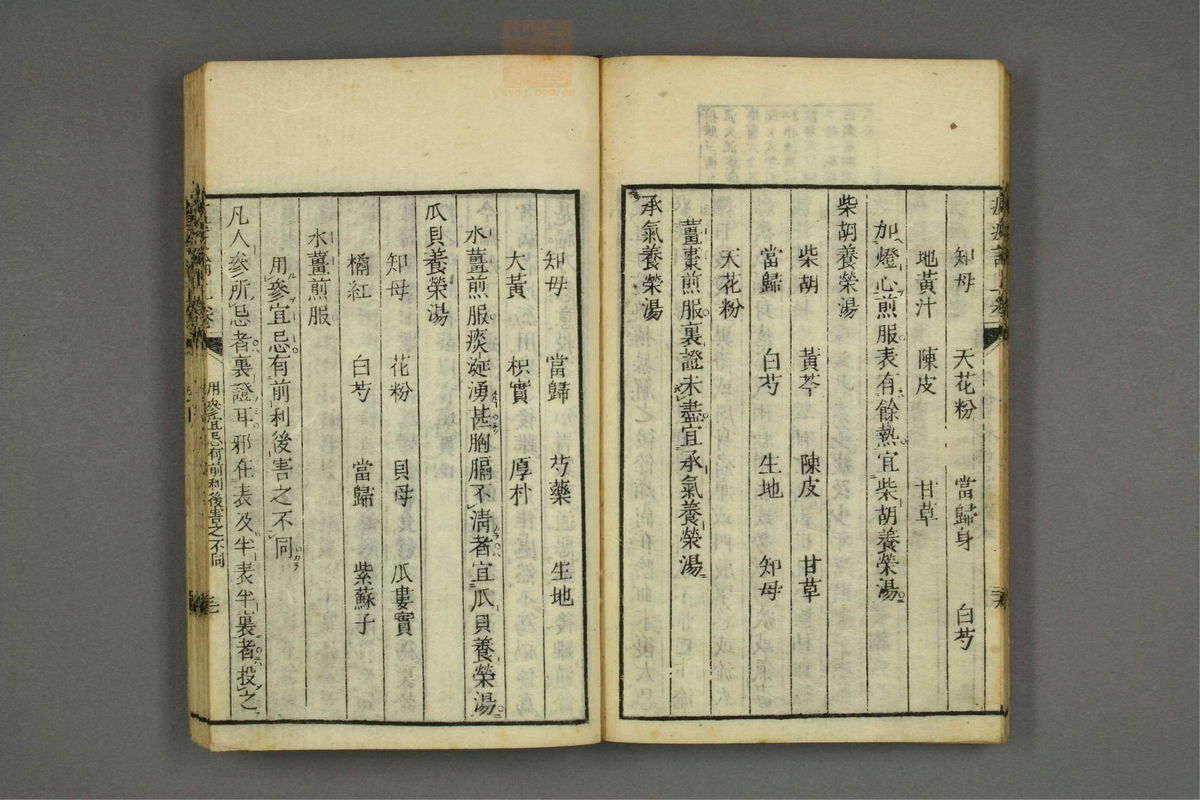 知母　天花粉　當歸身　白芍
地黃汁　陳皮　甘草
加燈心煎服表有餘熱宜柴胡養榮湯
柴胡養榮湯
柴胡　黃芩　陳皮　甘草
當歸　白芍　生地　知母
天花粉
薑棗煎服裏證未盡宜承氣養榮湯
承氣養榮湯
知母　當歸　芍藥　生地
大黃　枳實　厚朴
水薑煎服痰涎湧甚胸膈不清者宜瓜貝養榮湯
瓜貝養榮湯
知母　花粉　貝母　瓜蔞實
橘紅　白芍　當歸　紫蘇子
水薑煎服
用參宜忌有前利後害之不同
凡人參所忌者裏證耳邪在表及半表半裏者投之
用參宜忌有前利後害之不同